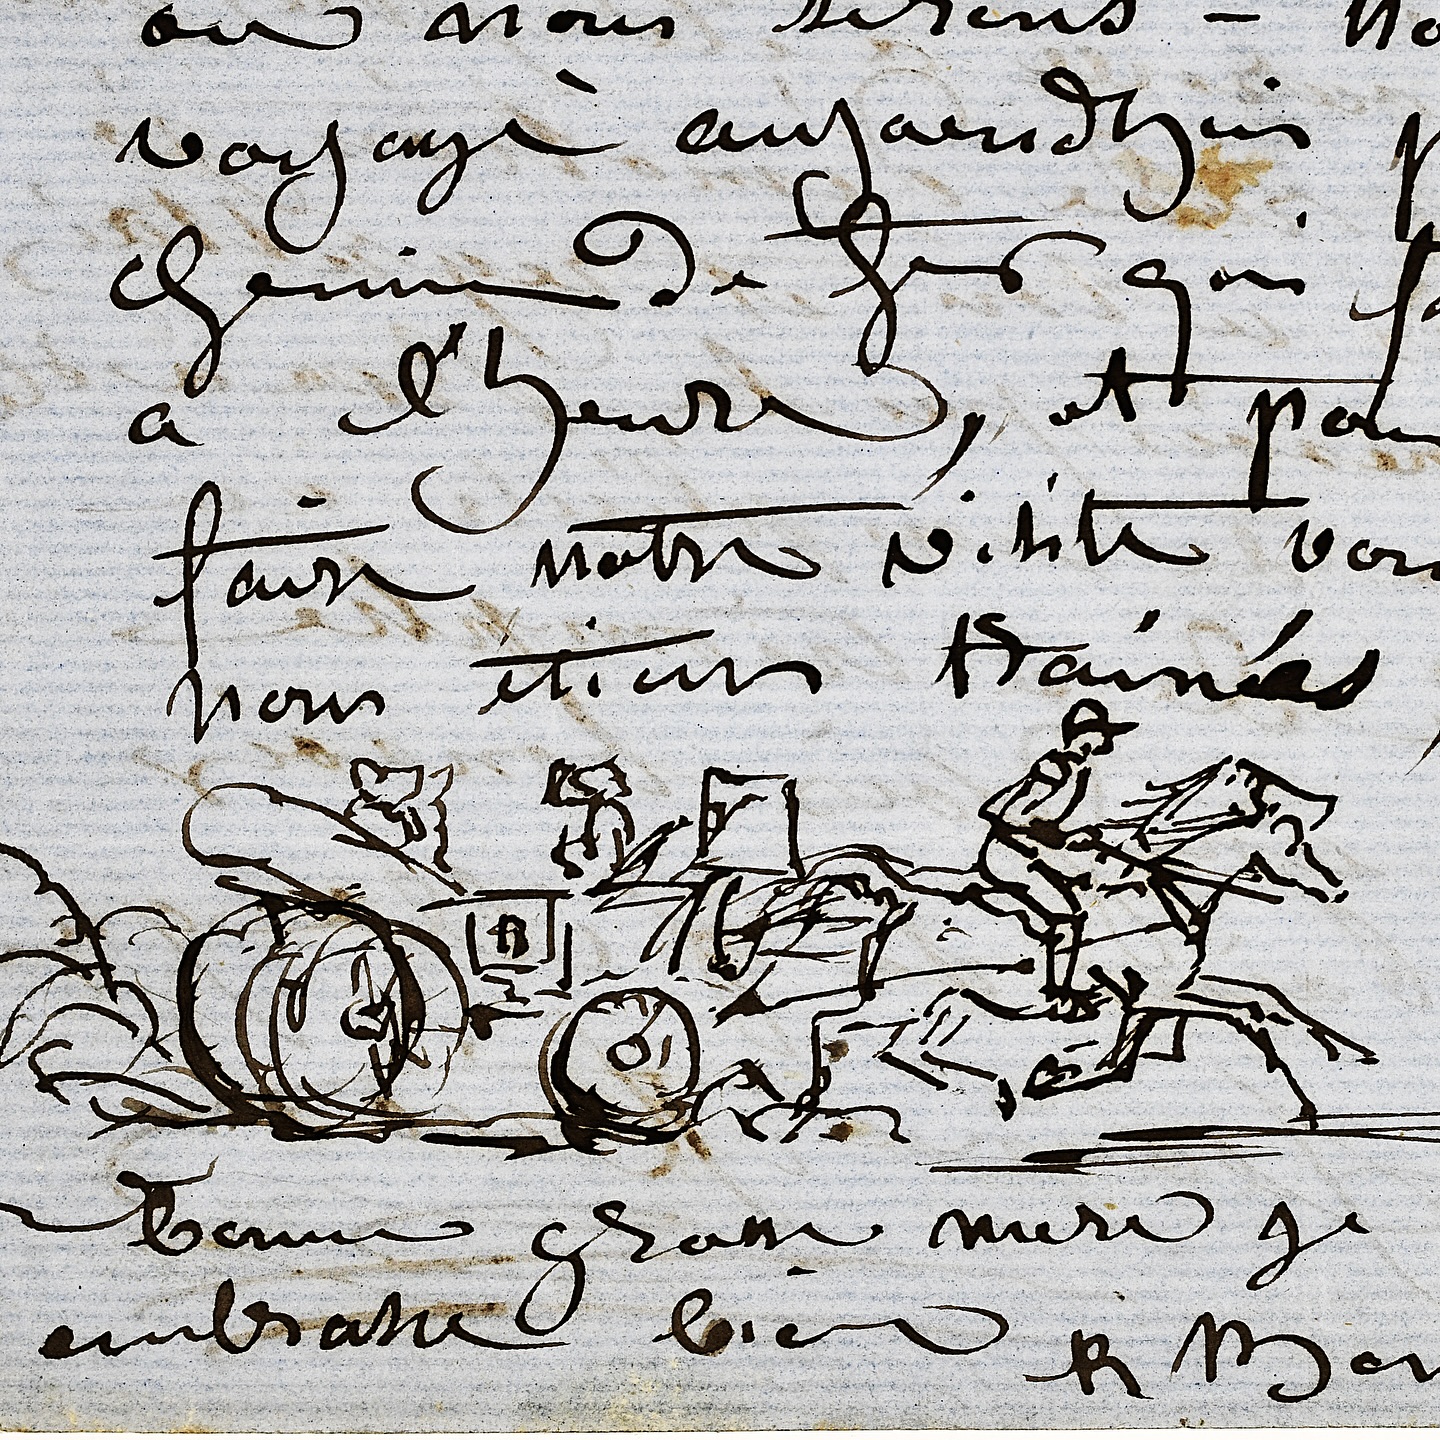 ou nous serons – no
voyagé aujourd'hui p
chemin de fer qui fa
a l'heure, et pou
faire notre visite vou
nous étions trainés
bonne grosse mere je
embrasse bien R Bon